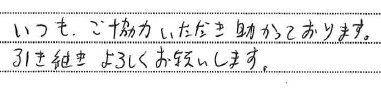 いつも、ご協力いただき助かっております。
引き継きよろしくお願いします。